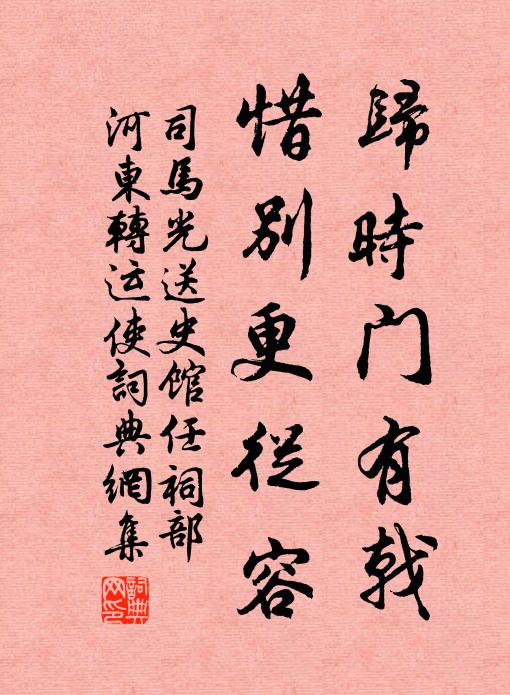 歸時門有戟
惜別更從容
司馬光送史館任祠部
河東轉运使詞典網集
詞典网印